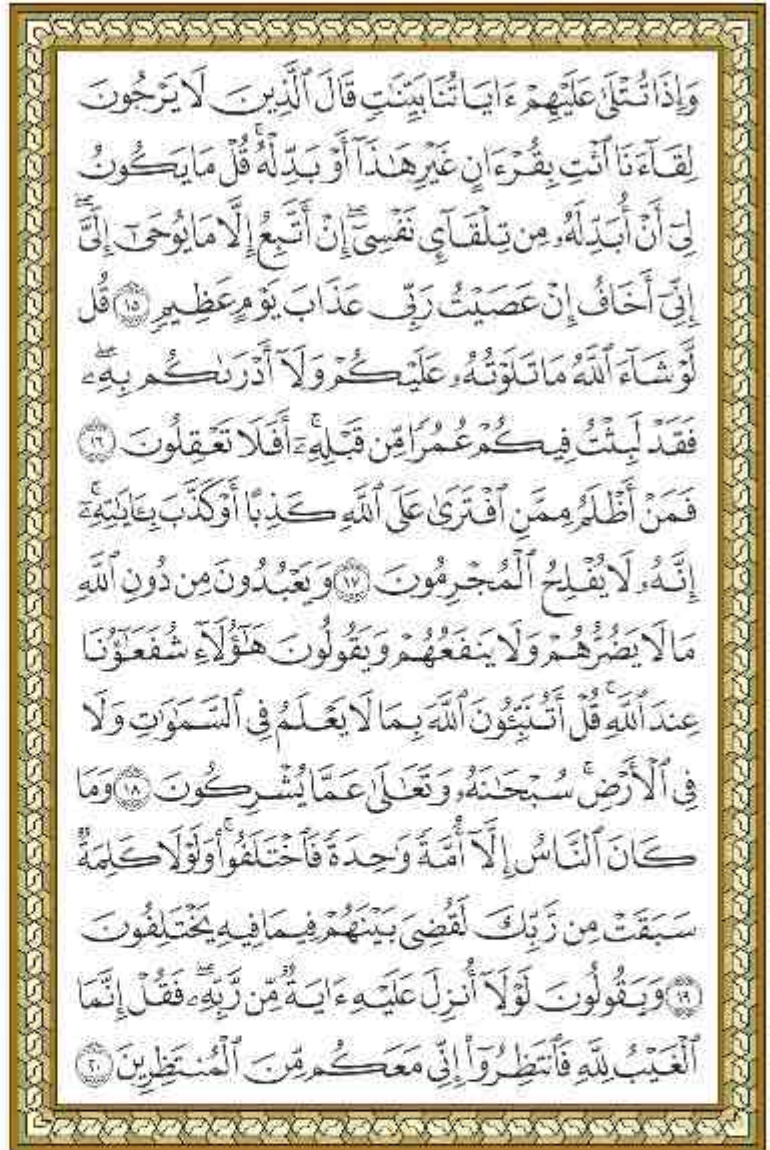 وَإِذَا تُتْلَىٰ عَلَيْهِمْ ءَايَاتُنَا بَيِّنَٰتٍ قَالَ ٱلَّذِينَ لَا يَرْجُونَ
لِقَآءَنَا ٱئْتِ بِقُرْءَانٍ غَيْرِ هَٰذَآ أَوْ بَدِّلْهُ ۚ قُلْ مَا يَكُونُ
لِىٓ أَنْ أُبَدِّلَهُۥ مِن تِلْقَآىِٕ نَفْسِىٓ ۖ إِنْ أَتَّبِعُ إِلَّا مَا يُوحَىٰٓ إِلَىَّ ۖ
إِنِّىٓ أَخَافُ إِنْ عَصَيْتُ رَبِّى عَذَابَ يَوْمٍ عَظِيمٍ ١٥ قُل
لَّوْ شَآءَ ٱللَّهُ مَا تَلَوْتُهُۥ عَلَيْكُمْ وَلَآ أَدْرَىٰكُم بِهِۦ ۖ
فَقَدْ لَبِثْتُ فِيكُمْ عُمُرًا مِّن قَبْلِهِۦٓ ۚ أَفَلَا تَعْقِلُونَ ١٦
فَمَنْ أَظْلَمُ مِمَّنِ ٱفْتَرَىٰ عَلَى ٱللَّهِ كَذِبًا أَوْ كَذَّبَ بِـَٔايَٰتِهِۦٓ ۚ
إِنَّهُۥ لَا يُفْلِحُ ٱلْمُجْرِمُونَ ١٧ وَيَعْبُدُونَ مِن دُونِ ٱللَّهِ
مَا لَا يَضُرُّهُمْ وَلَا يَنفَعُهُمْ وَيَقُولُونَ هَٰٓؤُلَآءِ شُفَعَٰٓؤُنَا
عِندَ ٱللَّهِ ۚ قُلْ أَتُنَبِّـُٔونَ ٱللَّهَ بِمَا لَا يَعْلَمُ فِى ٱلسَّمَٰوَٰتِ وَلَا
فِى ٱلْأَرْضِ ۚ سُبْحَٰنَهُۥ وَتَعَٰلَىٰ عَمَّا يُشْرِكُونَ ١٨ وَمَا
كَانَ ٱلنَّاسُ إِلَّآ أُمَّةً وَٰحِدَةً فَٱخْتَلَفُوا۟ ۚ وَلَوْلَا كَلِمَةٌ
سَبَقَتْ مِن رَّبِّكَ لَقُضِىَ بَيْنَهُمْ فِيمَا فِيهِ يَخْتَلِفُونَ
١٩ وَيَقُولُونَ لَوْلَآ أُنزِلَ عَلَيْهِ ءَايَةٌ مِّن رَّبِّهِۦ ۖ فَقُلْ إِنَّمَا
ٱلْغَيْبُ لِلَّهِ فَٱنتَظِرُوٓا۟ إِنِّى مَعَكُم مِّنَ ٱلْمُنتَظِرِينَ ٢٠